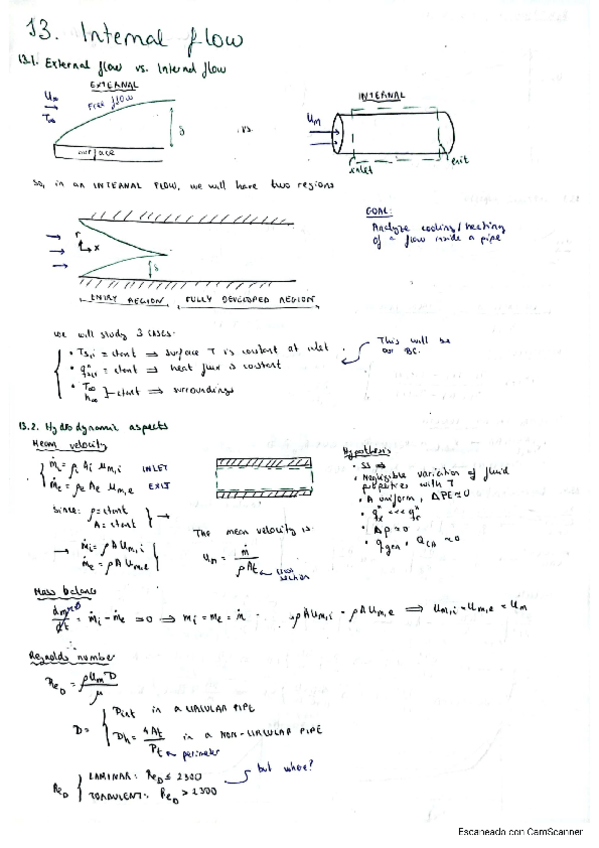 13. Internal flow
13.1. External flow vs. Internal flow
EXTERNAL
U∞
T∞
Free flow
δ
surface
vs.
INTERNAL
um
inlet
exit
So, in an INTERNAL FLOW, we will have two regions
GOAL:
Analyze cooling/heating
of a flow inside a pipe
r
x
δ
ENTRY REGION
FULLY DEVELOPED REGION
we will study 3 CASES:
• Ts,i = ctant ⇒ surface T is constant at inlet
• q"surf = ctant ⇒ heat flux is constant
• T∞
h∞ } = ctant ⇒ surroundings
This will be
our BC.
13.2. Hydrodynamic aspects
Mean velocity
ṁi = ρi Ai um,i INLET
ṁe = ρe Ae um,e EXIT
Since: ρ = ctant
A = ctant } →
→ ṁi = ρ A um,i
ṁe = ρ A um,e
The mean velocity is:
um = ṁ / ρAt
cross
section
Hypothesis
• SS ⇒
• Negligible variation of fluid
properties with T
• A uniform, ΔPE ≈ 0
• q"x <<< q"r
• Δp ≈ 0
• qgen, ≈ 0
Mass balance
dm/dt = ṁi - ṁe = 0 ⇒ ṁi = ṁe = ṁ · ρAum,i = ρAum,e ⇒ um,i = um,e = um
Reynolds number
ReD = ρumD / μ
D = { Dint in a CIRCULAR PIPE
Dh = 4At / Pt in a NON-CIRCULAR PIPE
perimeter
ReD { LAMINAR: ReD ≤ 2300
TURBULENT: ReD > 2300
but where?
Escaneado con CamScanner